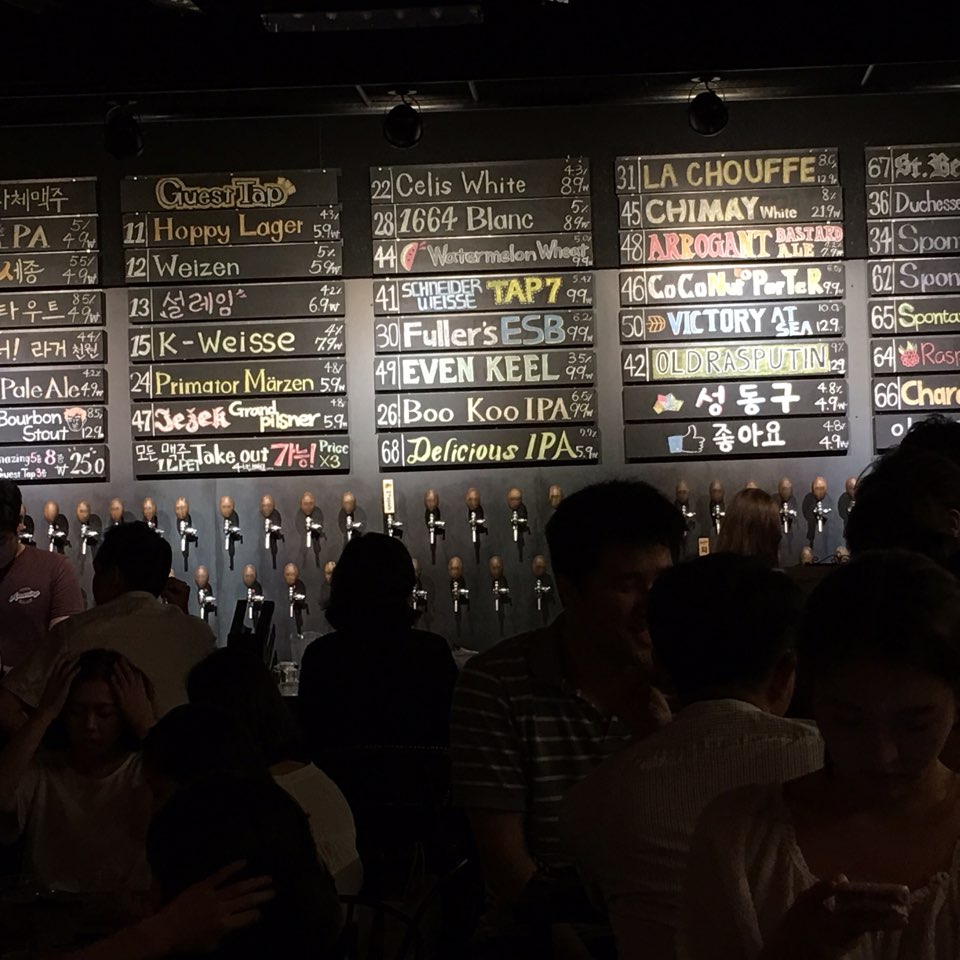 자체맥주
IPA 5% 4.9₩
세종 5.5% 4.9₩
타우트 8.5% 4.9₩
! 라거 4.4% 천원
Pale Ale 4.9₩
Bourbon Stout 8.5% 12.9₩
mazing 5종 8종 ₩25.0
Guest Tap 3종
Guest Tap
11 Hoppy Lager 4.3% 5.9₩
12 Weizen 5% 5.9₩
13 설레임 4.2% 6.9₩
15 K-Weisse 4% 7.9₩
24 Primator Märzen 4.8% 5.9₩
47 Ježek Grand pilsner 4.8 5.9₩
모든 맥주 Take out 가능! Price X3
1L PET
22 Celis White 4.3% 8.9₩
28 1664 Blanc 5% 8.9₩
44 Watermelon Wheat 5.0 9.9₩
41 SCHNEIDER WEISSE TAP 7 5.4% 9.9₩
30 Fuller's ESB 9.9₩
49 EVEN KEEL 3.5% 9.9₩
26 Boo Koo IPA 9.9₩
68 Delicious IPA 5.9₩
31 LA CHOUFFE 8.0 12.9
45 CHIMAY White 8% 21.9₩
48 ARROGANT BASTARD ALE 7.9₩
46 CoCoNuT PorTeR 9.9₩
50 VICTORY AT SEA 10.0 12.9
42 OLD RASPUTIN 9% 12.9
성동구 4.8% 4.9₩
좋아요 4.8% 4.9₩
67 St. Be
36 Duchesse
34 Spon
62 Spon
65 Sponta
64 Rasp
66 Char